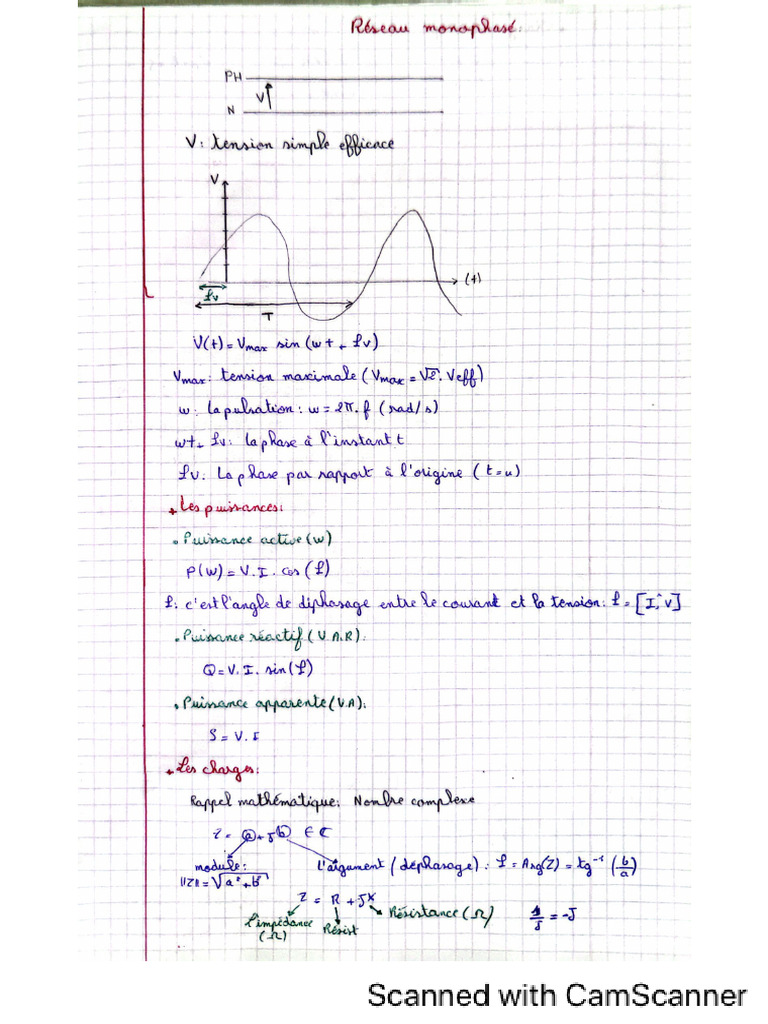 Réseau monophasé:
PH
V
N
V: tension simple efficace
V
(t)
φv
T
V(t) = Vmax sin (wt + φv)
Vmax: tension maximale (Vmax = √2. Veff)
w: la pulsation: w = 2π.f (rad/s)
wt + φv: la phase à l'instant t
φv: La phase par rapport à l'origine (t=u)
+ Les puissances:
• Puissance active (w)
P(w) = V.I. cos (φ)
φ: c'est l'angle de diphasage entre le courant et la tension: φ = [I,^V]
• Puissance réactif (V.A.R):
Q = V.I. sin(φ)
• Puissance apparente (V.A):
S = V.I
+ Les charges:
Rappel mathématique: Nombre complexe
Z = a + Jb ∈ C
module: L'aigument (déphasage): φ = Arg(Z) = tg⁻¹ (b/a)
||Z|| = √a² + b²
Z = R + JX
L'impédance (Ω) Résist Résistance (Ω) 1/J = -J
Scanned with CamScanner